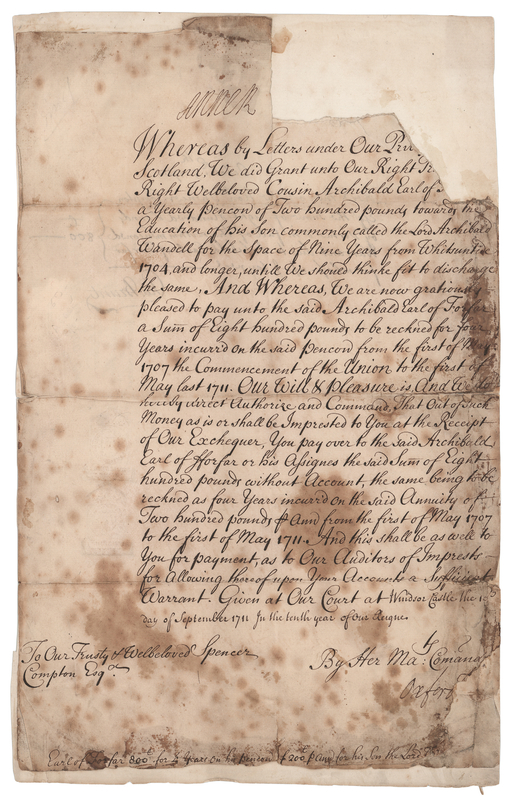 ANNE R
Whereas by Letters under Our Priv
Scotland, We did Grant unto Our Right Tr
Right Welbeloved Cousin Archibald Earl of
a Yearly Pencon of Two hundred pounds towards the
Education of his Son commonly called the Lord Archibald
Wandell for the Space of Nine Years from Whitsuntid
1704, and longer, untill We should thinke fit to discharge
the same, And Whereas, We are now gratiously
pleased to pay unto the said Archibald Earl of Forfar
a Sum of Eight hundred pounds to be reckned for four
Years incurr'd on the said Pencon from the first of May
1707 the Commencement of the Union to the first of
May last 1711. Our Will & Pleasure is And We do
hereby direct Authorize and Command, That Out of Such
Money as is or shall be Imprested to You at the Receipt
of Our Exchequer, You pay over to the Said Archibald
Earl of fforfar or his Assignes the said Sum of Eight
hundred pounds without Account, the same being to be
reckned as four Years incurr'd on the said Annuity of
Two hundred pounds ⅌ Ann from the first of May 1707
to the first of May 1711. And this shall be as well to
You for payment, as to Our Auditors of Imprests
for Allowing thereof upon Your Accounts a Sufficient
Warrant. Given at Our Court at Windsor Castle the
day of September 1711 In the tenth year of Our Reigne
To Our Trusty & Welbeloved Spencer
Compton Esqr.
By Her Matys Comand
Oxford
Earl of Forfar 800li for 4 Years on his Pencon of 200li ⅌ ann for his Son the Lord